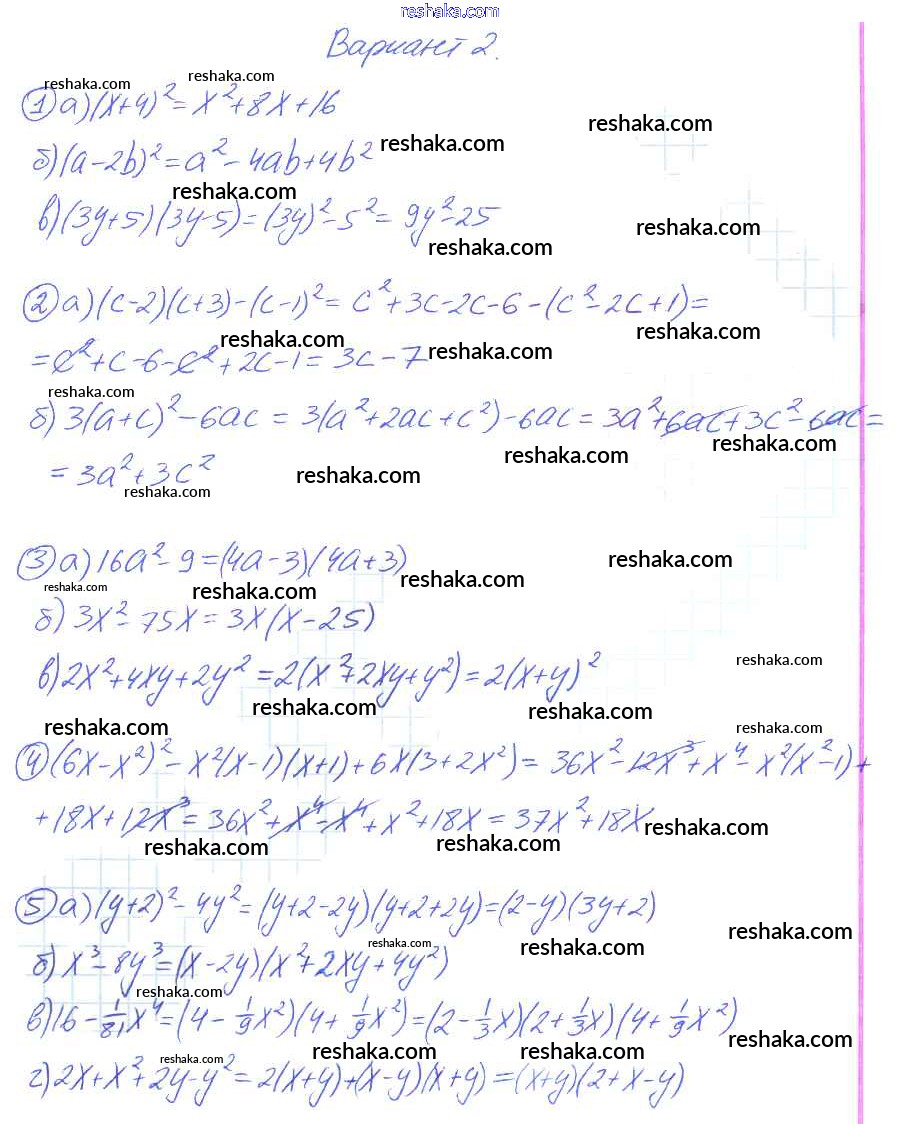 reshaka.com
Вариант 2.
reshaka.com reshaka.com
① а) (x+4)² = x²+8x+16
reshaka.com
б) (a-2b)² = a²-4ab+4b² reshaka.com
reshaka.com
в) (3y+5)(3y-5) = (3y)²-5² = 9y²-25
reshaka.com
reshaka.com
② а) (c-2)(c+3)-(c-1)² = c²+3c-2c-6-(c²-2c+1)=
reshaka.com reshaka.com
= c²+c-6-c²+2c-1 = 3c-7 reshaka.com
reshaka.com
б) 3(a+c)²-6ac = 3(a²+2ac+c²)-6ac = 3a²+6ac+3c²-6ac=
reshaka.com reshaka.com
= 3a²+3c² reshaka.com
reshaka.com
③ а) 16a²-9 = (4a-3)(4a+3) reshaka.com
reshaka.com reshaka.com reshaka.com
б) 3x²-75x = 3x(x-25)
в) 2x²+4xy+2y² = 2(x²+2xy+y²) = 2(x+y)² reshaka.com
reshaka.com reshaka.com
reshaka.com reshaka.com
④ (6x-x²)²-x²(x-1)(x+1)+6x(3+2x²) = 36x²-12x³+x⁴-x²(x²-1)+
+18x+12x³ = 36x²+x⁴-x⁴+x²+18x = 37x²+18x reshaka.com
reshaka.com reshaka.com
⑤ а) (y+2)²-4y² = (y+2-2y)(y+2+2y) = (2-y)(3y+2)
reshaka.com
reshaka.com reshaka.com
б) x³-8y³ = (x-2y)(x²+2xy+4y²)
reshaka.com
в) 16-1/81x⁴ = (4-1/9x²)(4+1/9x²) = (2-1/3x)(2+1/3x)(4+1/9x²)
reshaka.com
reshaka.com reshaka.com reshaka.com
г) 2x+x²+2y-y² = 2(x+y)+(x-y)(x+y) = (x+y)(2+x-y)